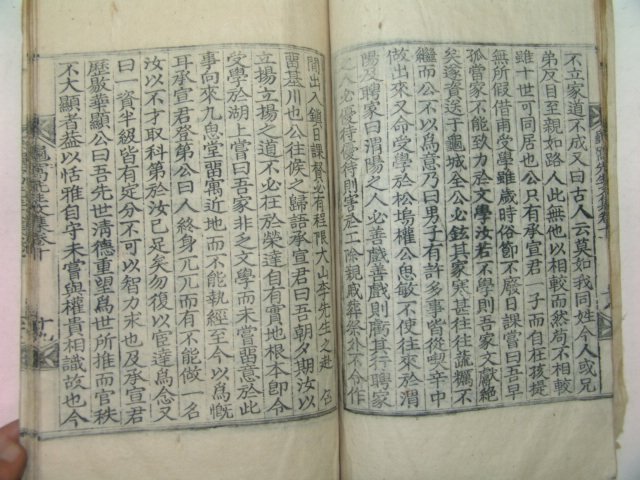 不立家道不成又曰古人云莫如我同姓今人或兄
弟反目至親如路人此無他以相較而然局不相較
雖十世可同居也公只有承宣君一子而自在孩提
無所假借甫受學雖歲時俗節不廢日課嘗曰吾早
孤當家不能致力於文學汝若不學則吾家文獻絶
矣遂資送于龜城全公必鉉其家寒甚往往蔬糲不
繼而公不以爲意乃曰男子有許多事皆從喫辛中
做出來又命受學於松塢權公思敏不使往來於渭
陽及聘家曰渭陽之人必善戲善戲則廢其行聘家
之人必優待優待則害於工除親戚葬祭外不令作
閒出入鎖日課督必有程限大山李先生之赴 召
留基川也公往候之歸語承宣君曰吾朝夕期汝以
立揚立揚之道不必在於榮達自有實地根本卽令
受學於湖上嘗曰吾家非乏文學而未嘗留意於此
事向來九魚堂留寓近地而不能執經至今以爲慨
耳承宣君登第公曰人終身兀兀而有不能做一名
汝以不才取科第於汝已足矣勿復以宦達爲念又
曰一資半級皆有定分不可以智力求也及承宣君
歷敭華顯公曰吾先世淸德重望爲世所推而官秩
不大顯者益以恬雅自守未嘗與權貴相識故也今
龜窩先生文集卷十